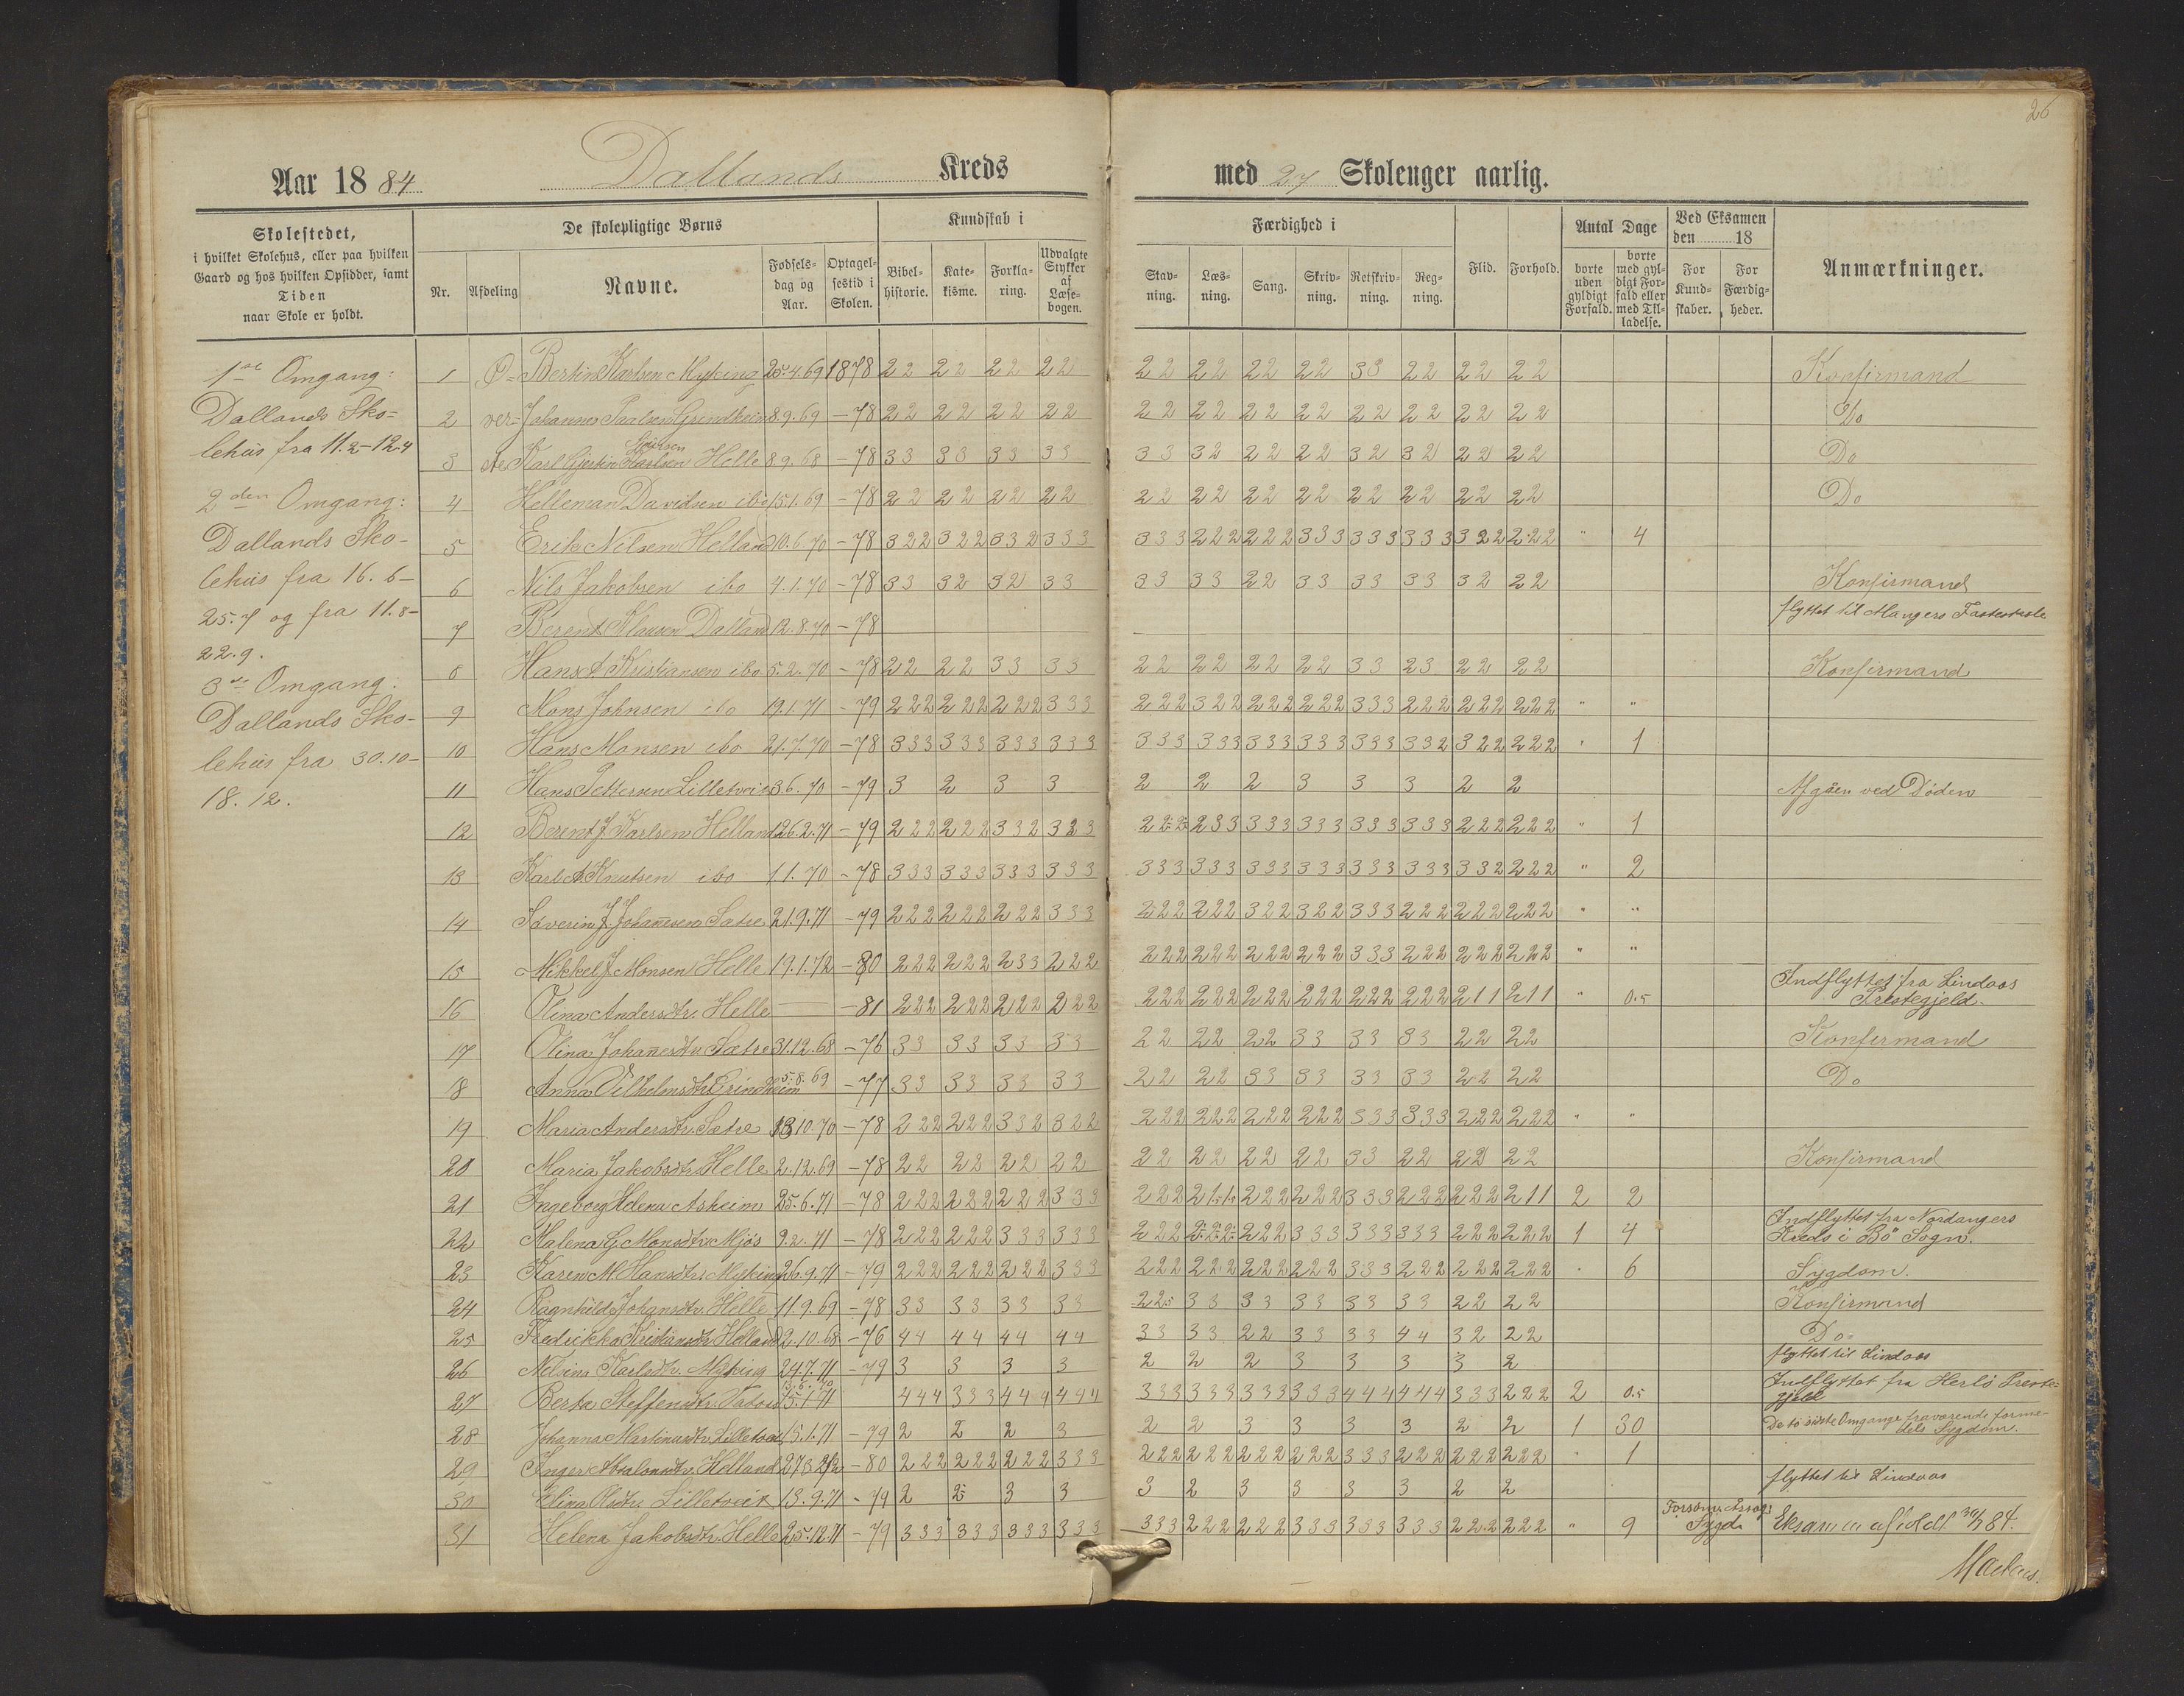 26
Aar 18 84 Dallands Kreds med 27 Skoleuger aarlig.
Skolestedet,
i hvilket Skolehus, eller paa hvilken
Gaard og hos hvilken Opsidder, samt
Tiden
naar Skole er holdt.
De skolepligtige Børns
Nr. Afdeling Navne. Fødsels-dag og Aar. Optagel-sestid i Skolen.
Kundskab i
Bibel-historie. Kate-kisme. Forkla-ring. Udvalgte Stykker af Læse-bogen.
Færdighed i
Stav-ning. Læs-ning. Sang. Skriv-ning. Retskriv-ning. Reg-ning.
Flid. Forhold.
Antal Dage
borte uden gyldigt Forfald. borte med gyl-digt For-fald eller med Til-ladelse.
Ved Eksamen
den 18
For Kund-skaber. For Færdig-heder.
Anmærkninger.
1ste Omgang:
Dallands Sko=
lehus fra 11.2-12.4
2den Omgang:
Dallands Sko-
lehus fra 16.6-
25.7 og fra 11.8-
22.9.
3die Omgang:
Dallands Sko-
lehus fra 30.10-
18.12.
1 Ø= Bertin Karlsen Myking 25.4.69 1878 22 22 22 22 22 22 22 22 33 22 22 22 Konfirmand
2 ver= Johannes Paulsen Grindheim 8.9.69 -78 22 22 22 22 22 22 22 22 22 22 22 22 Do
3 ste Karl Gjertin Karlsen Helle 8.9.68 -78 33 33 33 33 33 32 22 22 32 32 22 22 Do
4 Helleman Davidsen ibo 15.1.69 -78 22 22 22 22 22 22 22 22 22 22 22 22 Do
5 Erik Nilsen Helland 10.6.70 -78 322 322 332 333 333 222 222 333 333 333 322 222 " 4
6 Nils Jakobsen ibo 4.1.70 -78 33 32 32 33 33 33 22 33 33 33 32 22 Konfirmand
7 Berent Klausen Dalland 12.8.70 -78 flyttet til Mangers Fasteskole
8 Hans A Kristiansen ibo 5.2.70 -78 22 22 33 33 22 22 22 22 33 23 22 22 Konfirmand
9 Mons Johnsen ibo 19.1.71 -79 222 222 222 333 222 322 222 222 333 222 222 222 " "
10 Hans Monsen ibo 21.7.70 -78 333 333 333 333 333 333 333 333 333 332 322 222 " 1
11 Hans Pettersen Lilletveit 3.6.70 -79 3 2 3 3 2 2 2 3 3 3 2 2 Afgåen ved Döden
12 Berent J. Karlsen Helland 26.2.71 -79 222 222 332 323 222 233 333 333 333 333 222 222 " 1
13 Karl A Knutsen ibo 1.1.70 -78 333 333 333 333 333 333 333 333 333 333 332 222 " 2
14 Severin J. Johannesen Sætre 21.9.71 -79 222 222 222 333 222 222 322 322 333 222 222 222 " "
15 Mikkel J. Monsen Helle 19.1.72 -80 222 222 233 222 222 222 222 222 333 222 222 222 " "
16 Olina Andersdtr. Helle -81 222 222 222 222 222 222 222 222 222 222 211 211 " 0.5 Indflyttet fra Lindaas
Prestegjeld.
17 Olina Johannesdtr. Sætre 31.12.68 -76 33 33 33 33 22 22 22 33 33 33 22 22 Konfirmand
18 Anna Vilhelmsdtr. Grindheim 5.8.69 -77 33 33 33 33 22 22 33 33 33 33 22 22 Do
19 Maria Andersdtr. Sætre 13.10.70 -78 222 222 332 322 222 222 222 222 333 333 222 222 " "
20 Maria Jakobsdtr. Helle 2.12.69 -78 22 22 22 22 22 22 22 22 33 22 22 22 Konfirmand
21 Ingeborg Helena Askeim 25.6.71 -78 222 222 222 333 222 211 222 222 333 222 222 211 2 2
22 Malena G. Monsdtr. Mjös 9.2.71 -78 222 222 333 333 222 222 222 333 333 333 222 222 1 4 Indflyttet fra Nordangers
Kreds i Bö Sogn.
23 Karen M. Hansdtr. Myking 26.9.71 -79 222 222 222 333 222 222 222 222 333 222 222 222 6 Sygdom.
24 Ragnhild Johansdtr. Helle 11.9.69 -78 33 33 33 33 22 33 33 33 33 33 22 22 Konfirmand
25 Fredrikka Kristiansdtr. Helland 2.10.68 -76 44 44 44 44 33 33 22 33 33 44 32 22 Do
26 Nilsina Karlsdtr. Myking 24.7.71 -79 3 3 3 3 2 2 2 3 3 3 3 2 flyttet til Lindaas
27 Berta Steffensdtr. 444 333 444 444 333 333 333 333 444 444 333 222 2 0.5 Indflyttet fra Herlö Preste-
gjeld
28 Johanna Martinusdtr. Lilletveit 15.1.71 -79 2 2 2 3 2 2 3 3 3 3 2 2 1 30 De to sidste Omgange fraværende forme-
dels Sygdom.
29 Inger Absalonsdtr. Helland -80 222 222 222 333 222 222 222 222 333 222 222 222 1
30 Elina Olsdtr. Lilletveit 13.9.71 -79 2 2 3 3 3 2 3 3 3 3 2 2 flyttet til Lindaas
31 Helena Jakobsdtr. Helle 25.12.71 -79 333 333 333 333 333 222 222 333 333 333 222 222 " 9 Sygd. Eksamen afholdt 84.